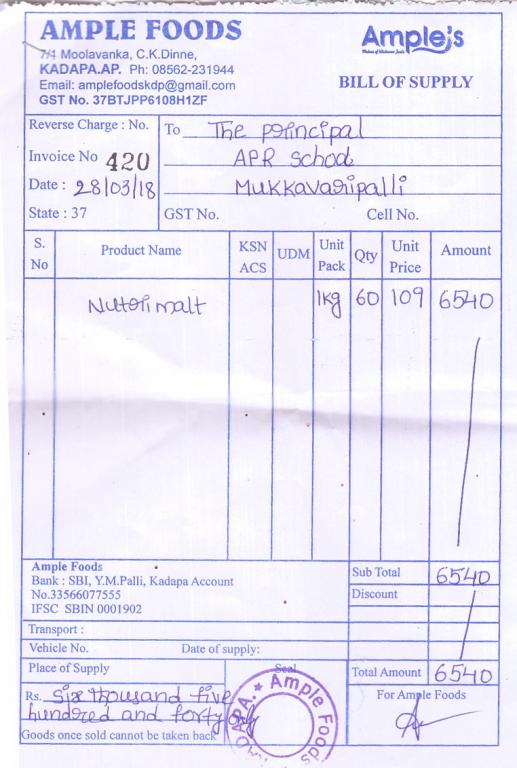 AMPLE FOODS
7/4 Moolavanka, C.K.Dinne,
KADAPA.AP. Ph: 08562-231944
Email: amplefoodskdp@gmail.com
GST No. 37BTJPP6108H1ZF
Ample's
BILL OF SUPPLY
Reverse Charge : No.
Invoice No 420
Date : 28/03/18
State : 37
To The principal
APR School
Mukkavaripalli
GST No. Cell No.
S. No Product Name KSN ACS UDM Unit Pack Qty Unit Price Amount
Nutrimalt 1kg 60 109 6540
Ample Foods
Bank : SBI, Y.M.Palli, Kadapa Account
No.33566077555
IFSC SBIN 0001902
Sub Total 6540
Discount
Transport :
Vehicle No. Date of supply:
Place of Supply Seal Total Amount 6540
Rs. six thousand five
hundred and forty only
Goods once sold cannot be taken back
For Ample Foods
Ample Foods
KADAPA.